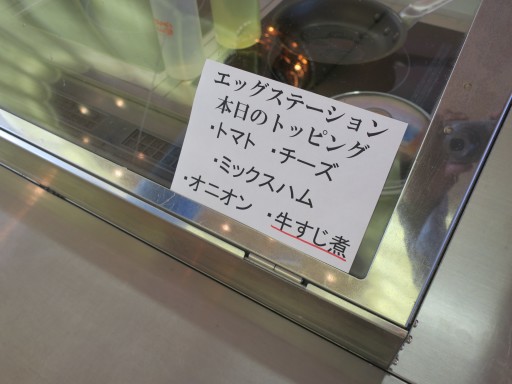 エッグステーション
本日のトッピング
・トマト ・チーズ
・ミックスハム
・オニオン ・牛すじ煮